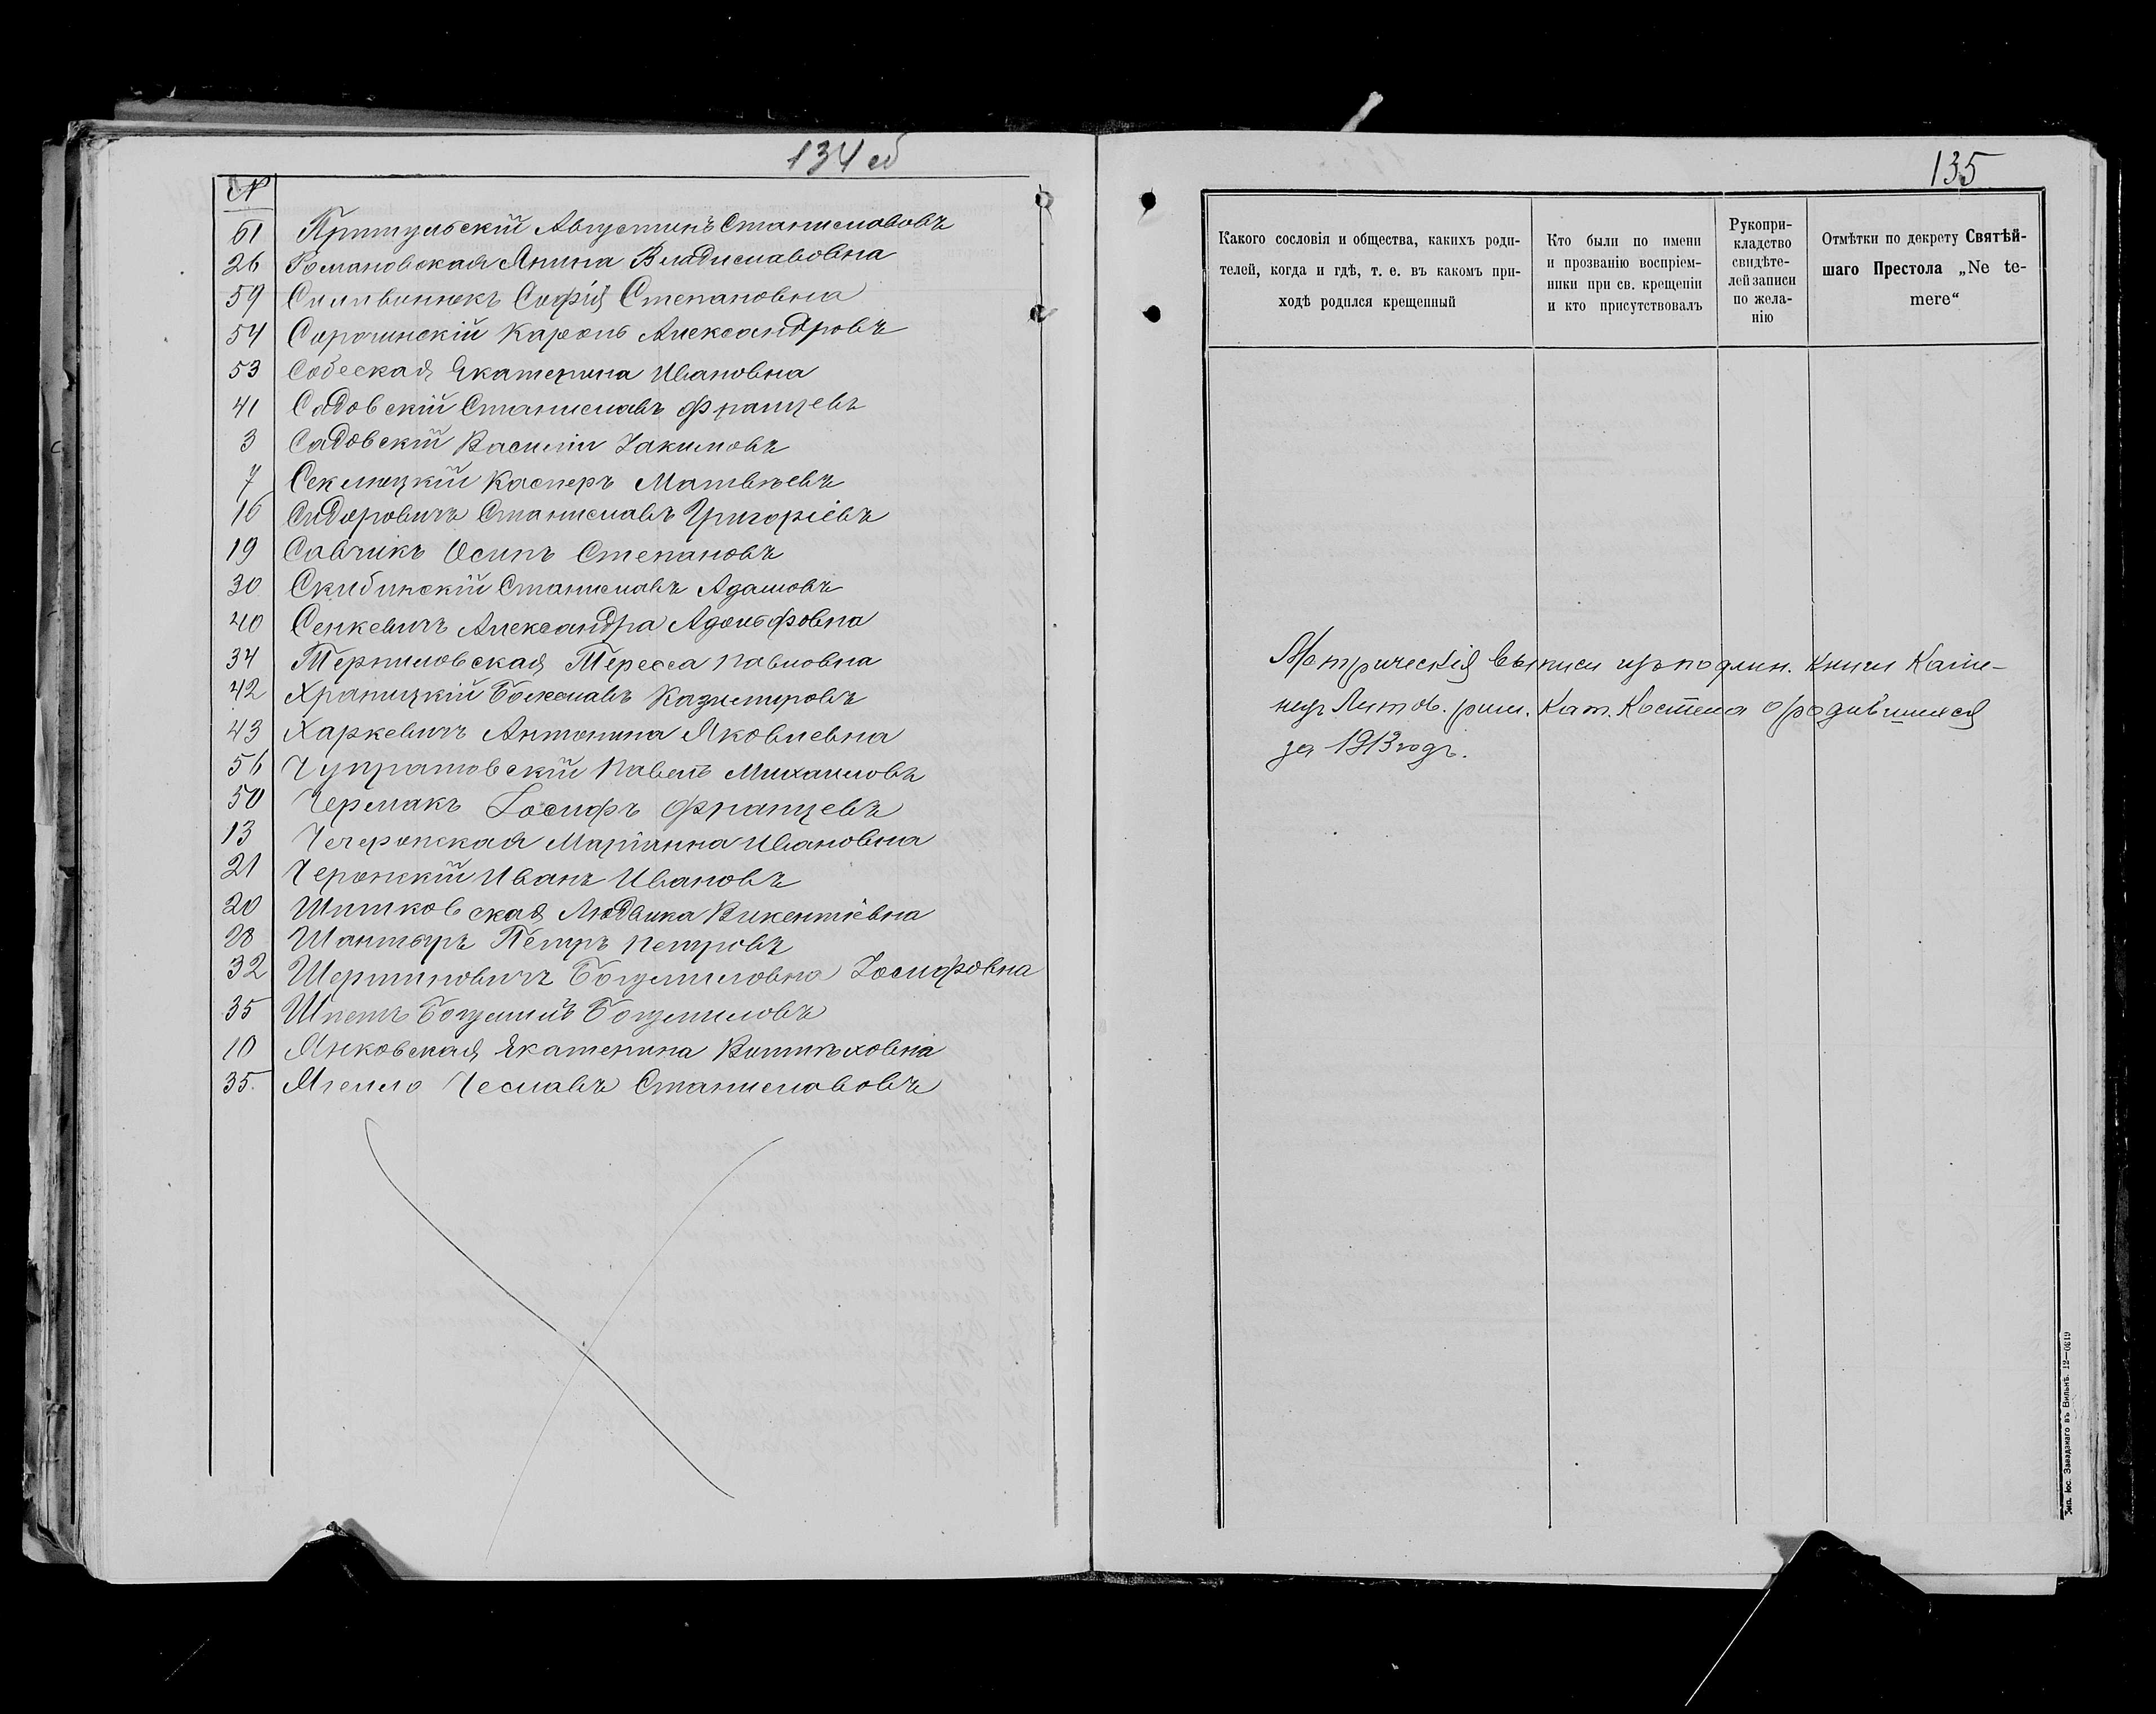 134 об
№
61 Притульскій Августинъ Станиславовъ
26 Романовская Янина Владиславовна
59 Силивинюкъ Софія Степановна
54 Сорочинскій Кароль Александровъ
53 Собеская Екатерина Ивановна
41 Садовскій Станиславъ Францевъ
3 Садовскій Василій Іакимовъ
7 Секлюцкій Касперъ Матвѣевъ
16 Сидоровичъ Станиславъ Григоріевъ
19 Савчикъ Осипъ Степановъ
30 Скибинскій Станиславъ Адамовъ
40 Сенкевичъ Александра Адольфовна
34 Терпиловская Тересса Павловна
42 Храпицкій Болеславъ Казимировъ
43 Харкевичъ Антонина Яковлевна
56 Павелъ Михаиловъ
50 Чермакъ Іосифъ Францевъ
13 Маріанна Ивановна
21 Черонскій Иванъ Ивановъ
20 Шитковская Людвика Викентіевна
28 Шантыръ Петръ Петровъ
32 Іосифовна
35 Шпетъ Богумилъ Богумиловъ
10 Янковская Екатерина
35. Чеславъ Станиславовъ
135
Какого сословія и общества, какихъ роди-
телей, когда и гдѣ, т. е. въ какомъ при-
ходѣ родился крещенный
Кто были по имени
и прозванію воспріем-
ники при св. крещеніи
и кто присутствовалъ
Рукопри-
кладство
свидѣте-
лей записи
по жела-
нію
Отмѣтки по декрету Святѣй-
шаго Престола „Ne te-
mere“
Метрическія выписи изъ подлин. книги Каме-
нецъ Литов. рим. Кат. Костела о родившихся
за 1913 годъ.
Тип. Іос. Завадзкаго въ Вильнѣ. 12—0619